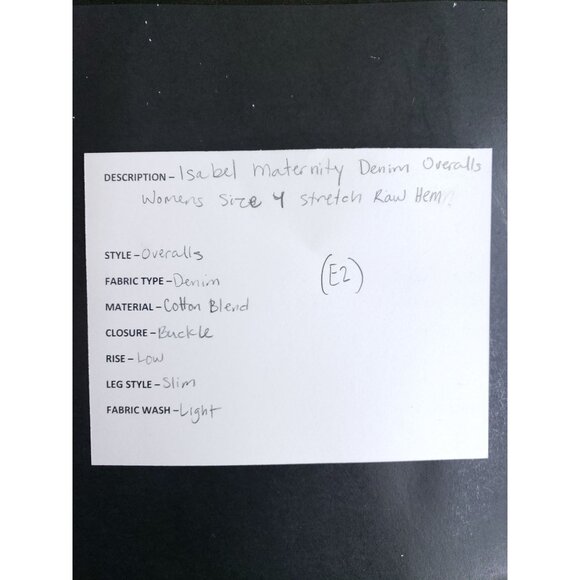 DESCRIPTION – Isabel Maternity Denim Overalls
Womens Size 4 Stretch Raw Hem
STYLE – Overalls
FABRIC TYPE – Denim
(E2)
MATERIAL – Cotton Blend
CLOSURE – Buckle
RISE – Low
LEG STYLE – Slim
FABRIC WASH – Light